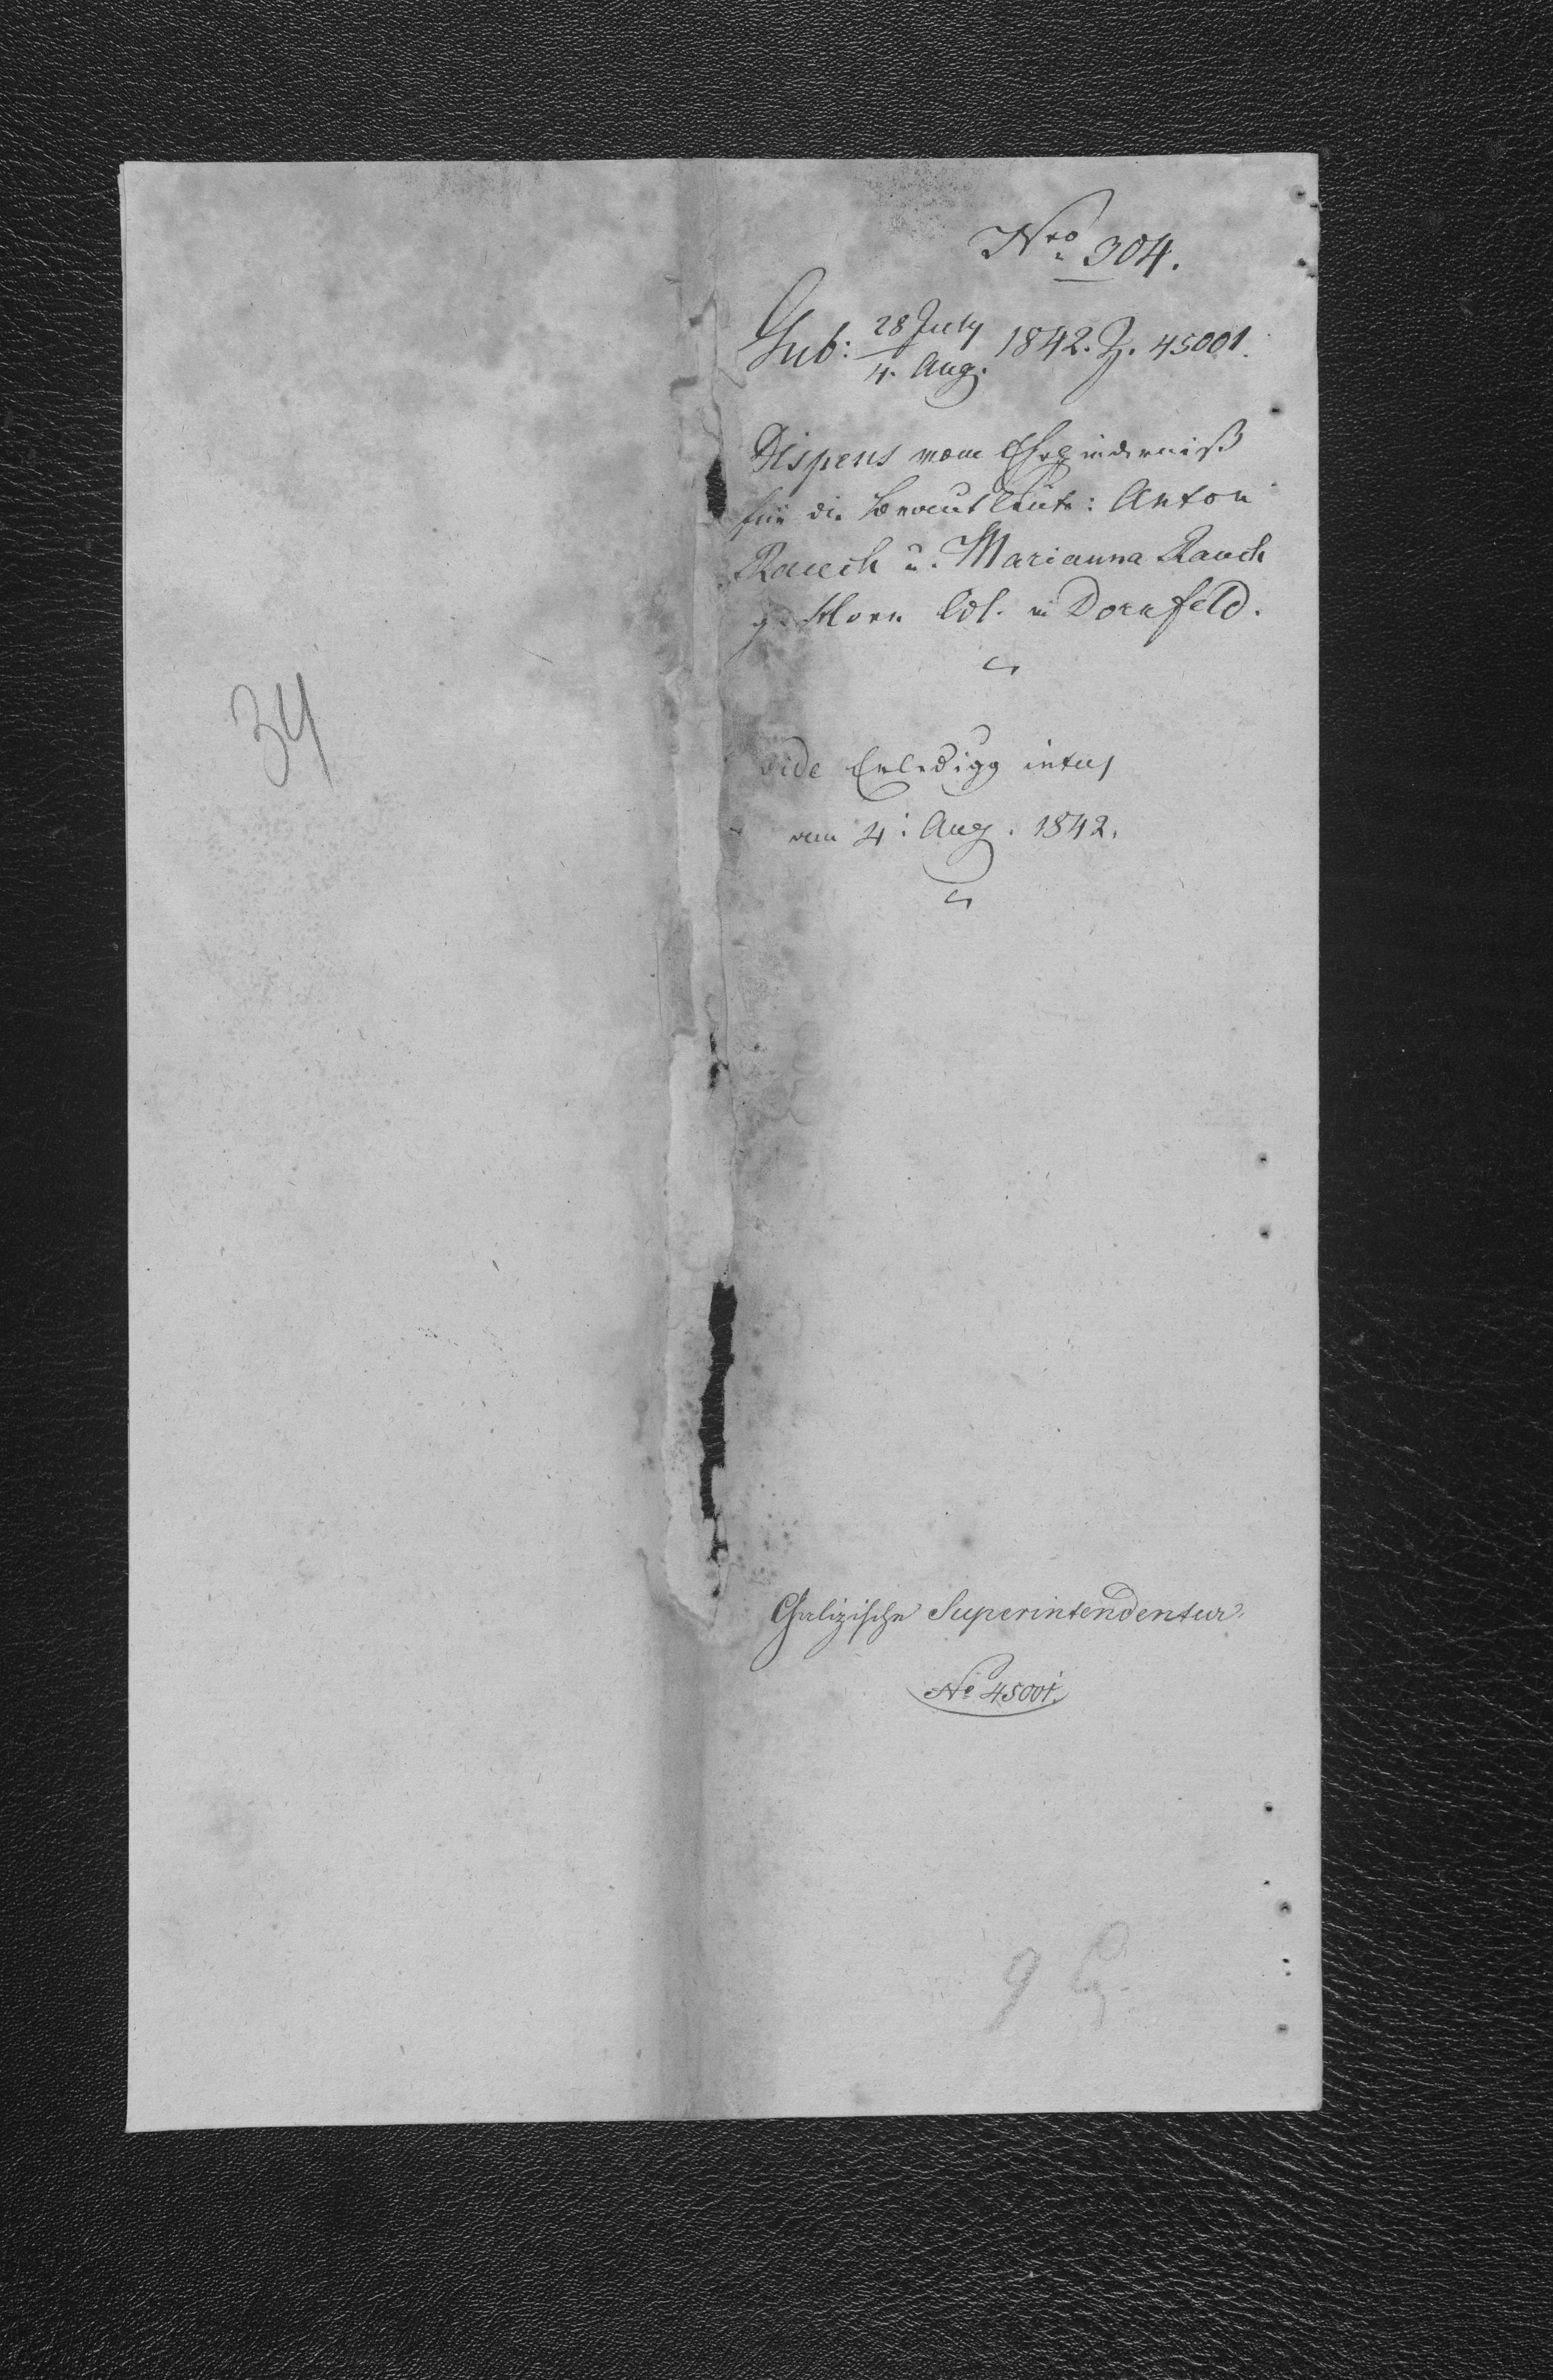 34
Nro 304.
Gub: 28 July / 4. Aug. 1842. Z. 45001.
Dispens vom Ehehinderniß
für die Brautleute: Anton
Rauch u. Marianna Rauch
g. Horn in Dornfeld.
vide Erledigg intus
vom 4. Aug. 1842.
Galizische Superintendentur
No 45001.
9